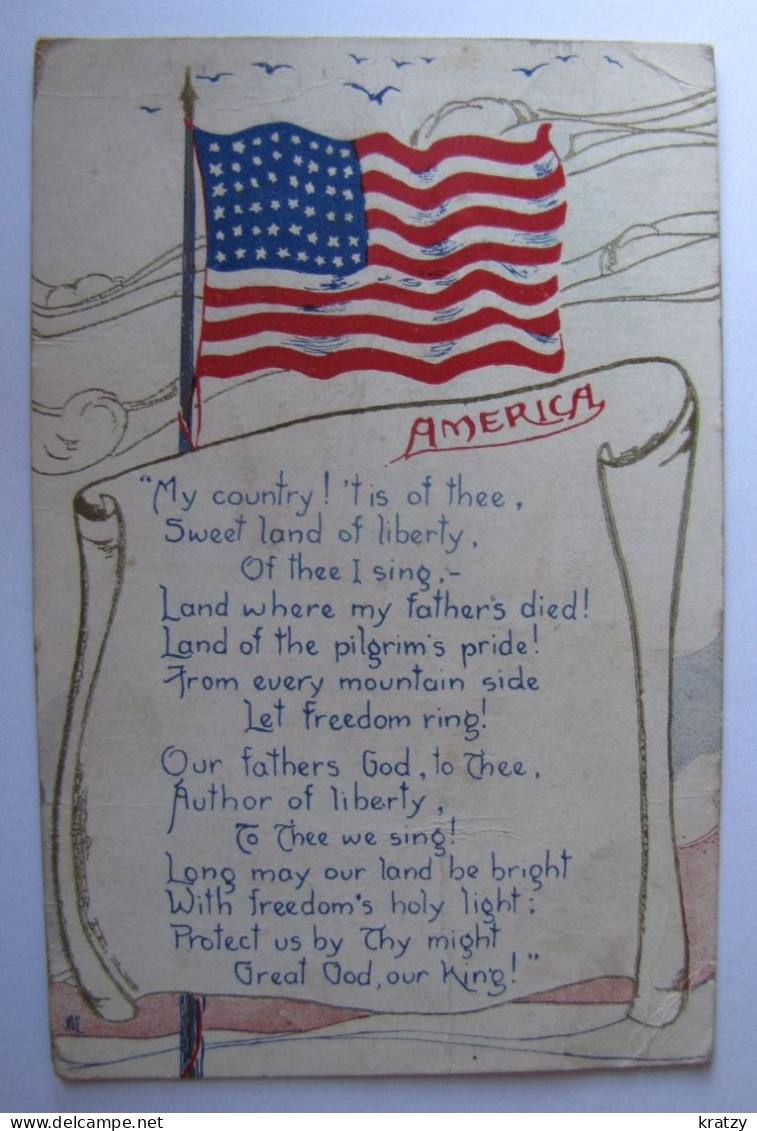 AMERICA
"My country! 'tis of thee,
Sweet land of liberty,
Of thee I sing,-
Land where my father's died!
Land of the pilgrim's pride!
From every mountain side
Let freedom ring!
Our fathers God, to Thee,
Author of liberty,
To Thee we sing!
Long may our land be bright
With freedom's holy light:
Protect us by Thy might
Great God, our King!"
kratzy